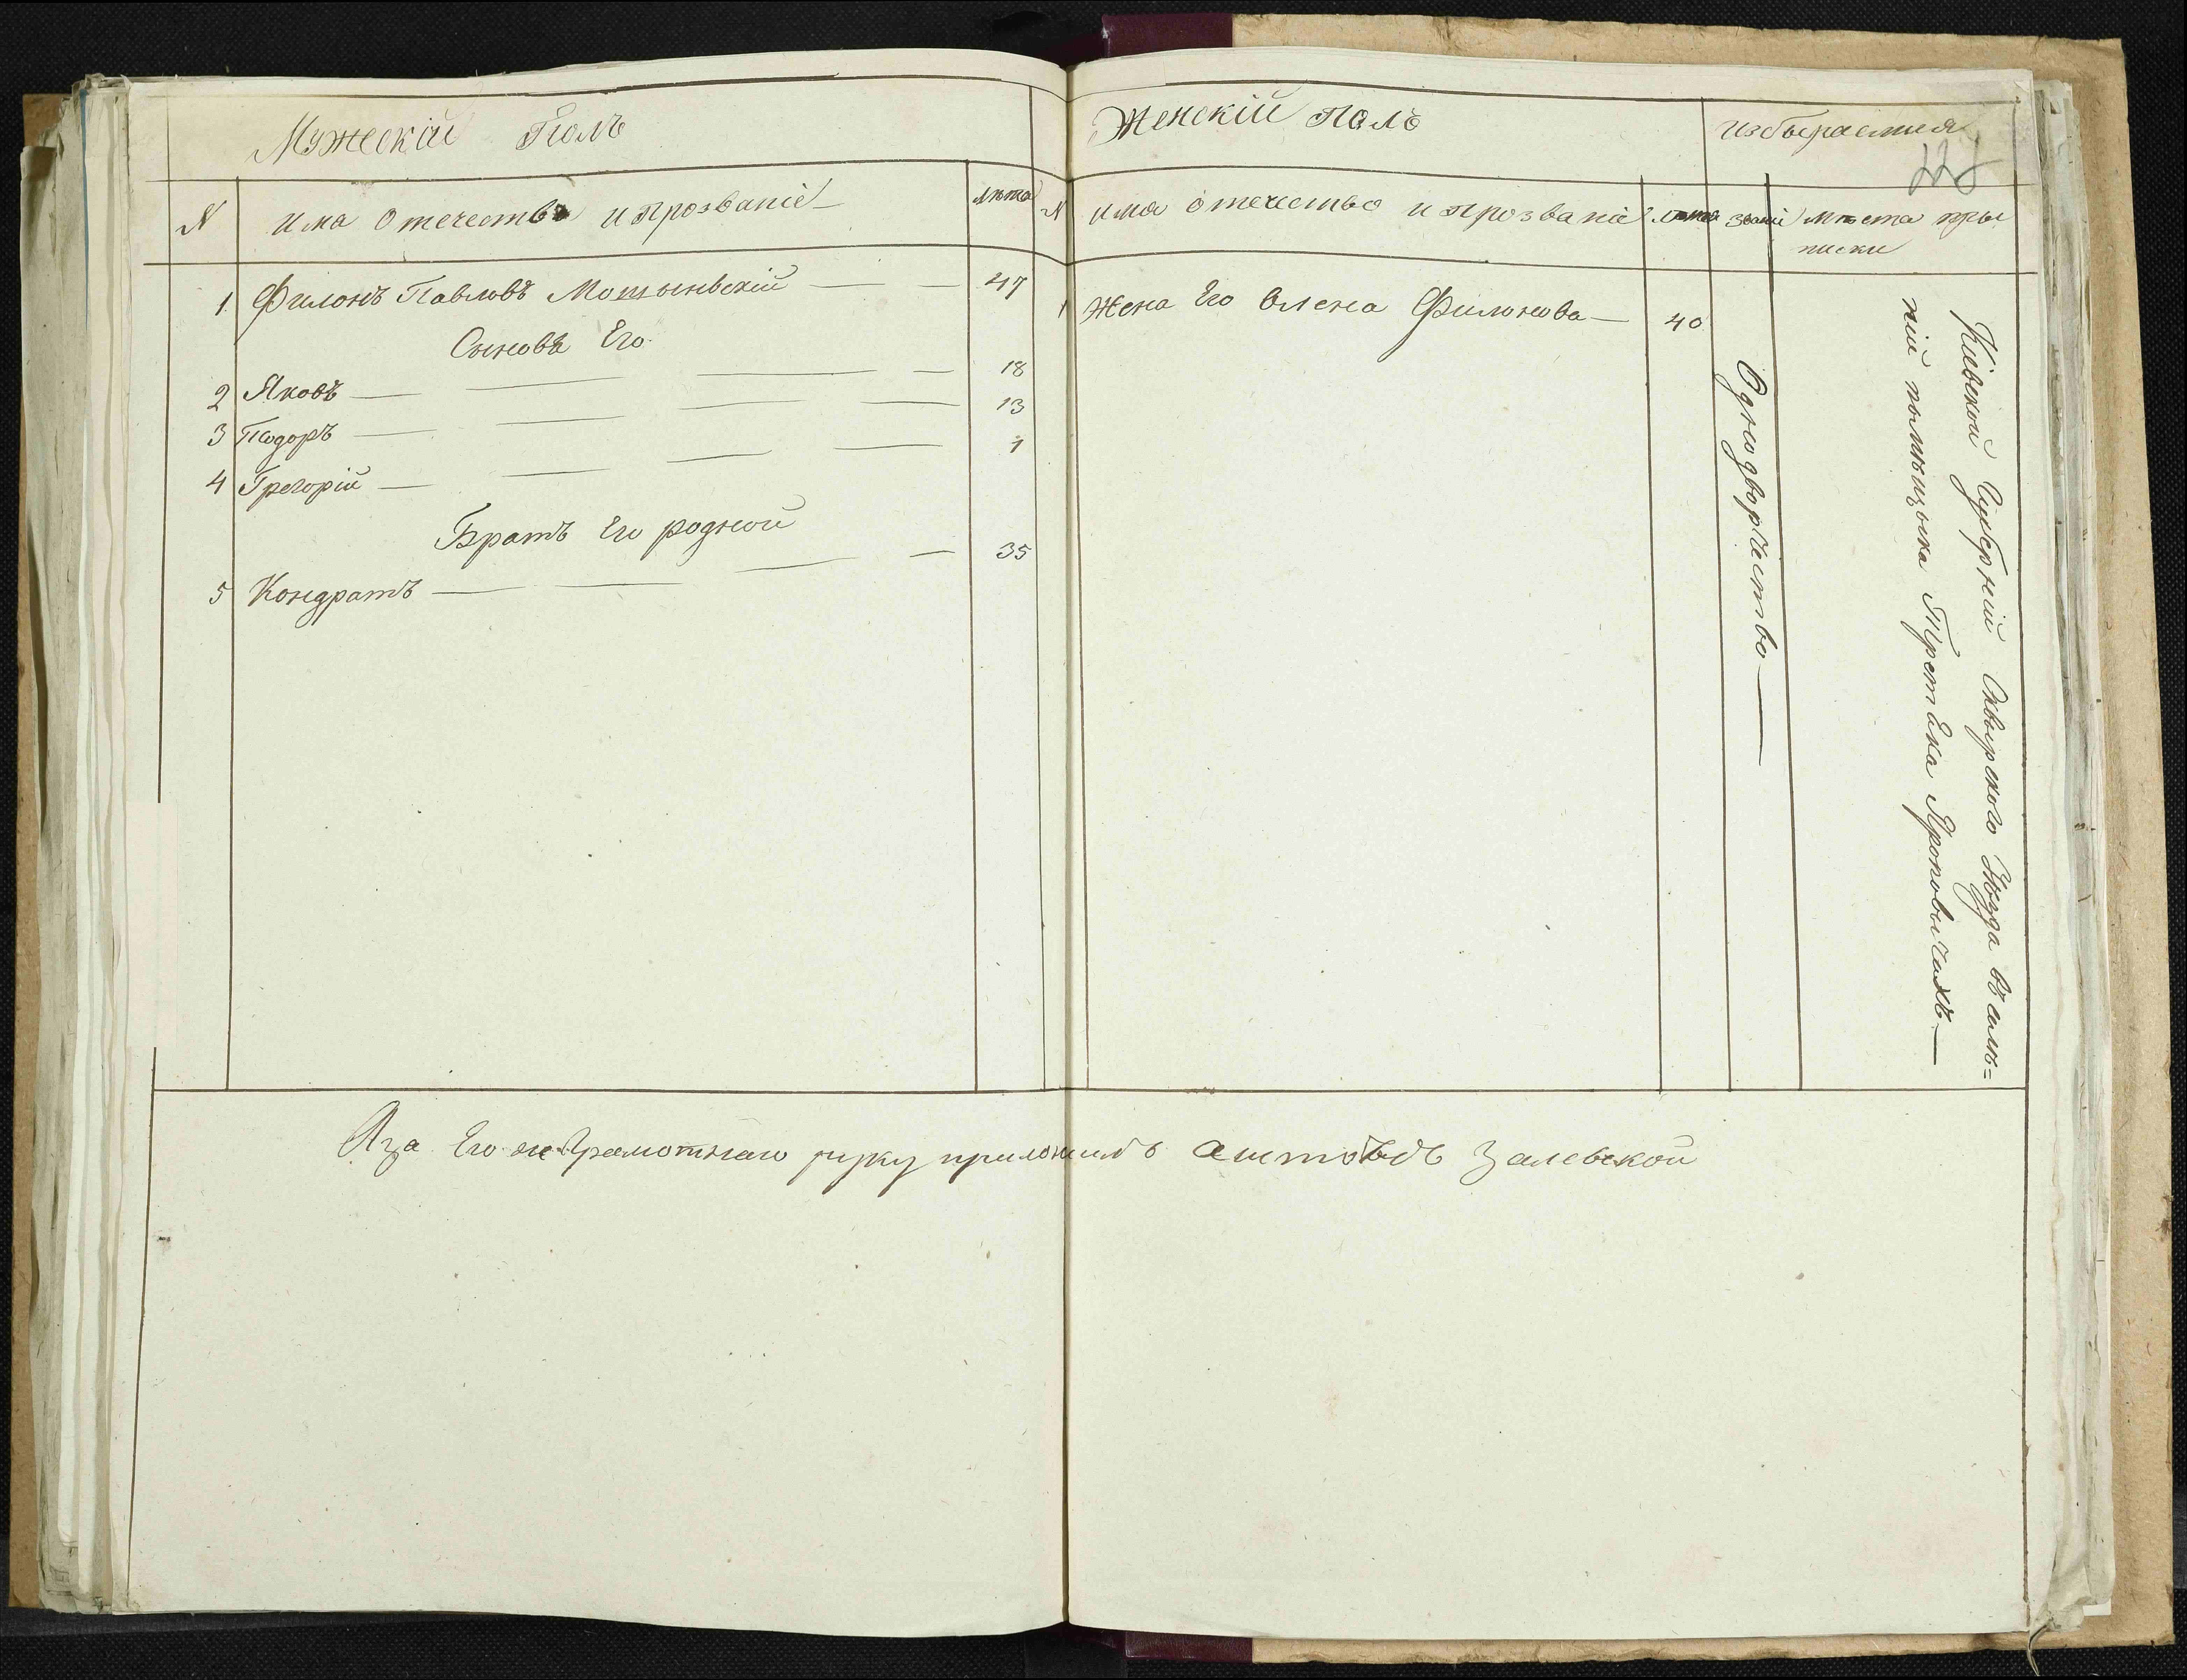 Мужескій Полъ
N има Отечество и прозваніе лѣта
1 Филонъ Павловъ Мотыевскій — — 47
Сыновя Его
2 Яковъ — — — — 18
3 Тодоръ — — — — 13
4 Грегорій — — — — 1
Братъ Его родной
5 Кондратъ — — — — 35
Женскій Полъ
избыраемия
228
N има отечество и прозваніе лѣта званій мѣста пры
писки
1 Жена Его Олена Филонова — 40
Однодворчество —
Кіевской Губерній Сквырского Уѣзда въ имѣ=
ній помѣщыка Третяка Яроповычахъ —
А за Его неграмотнаго руку приложилъ Залевской